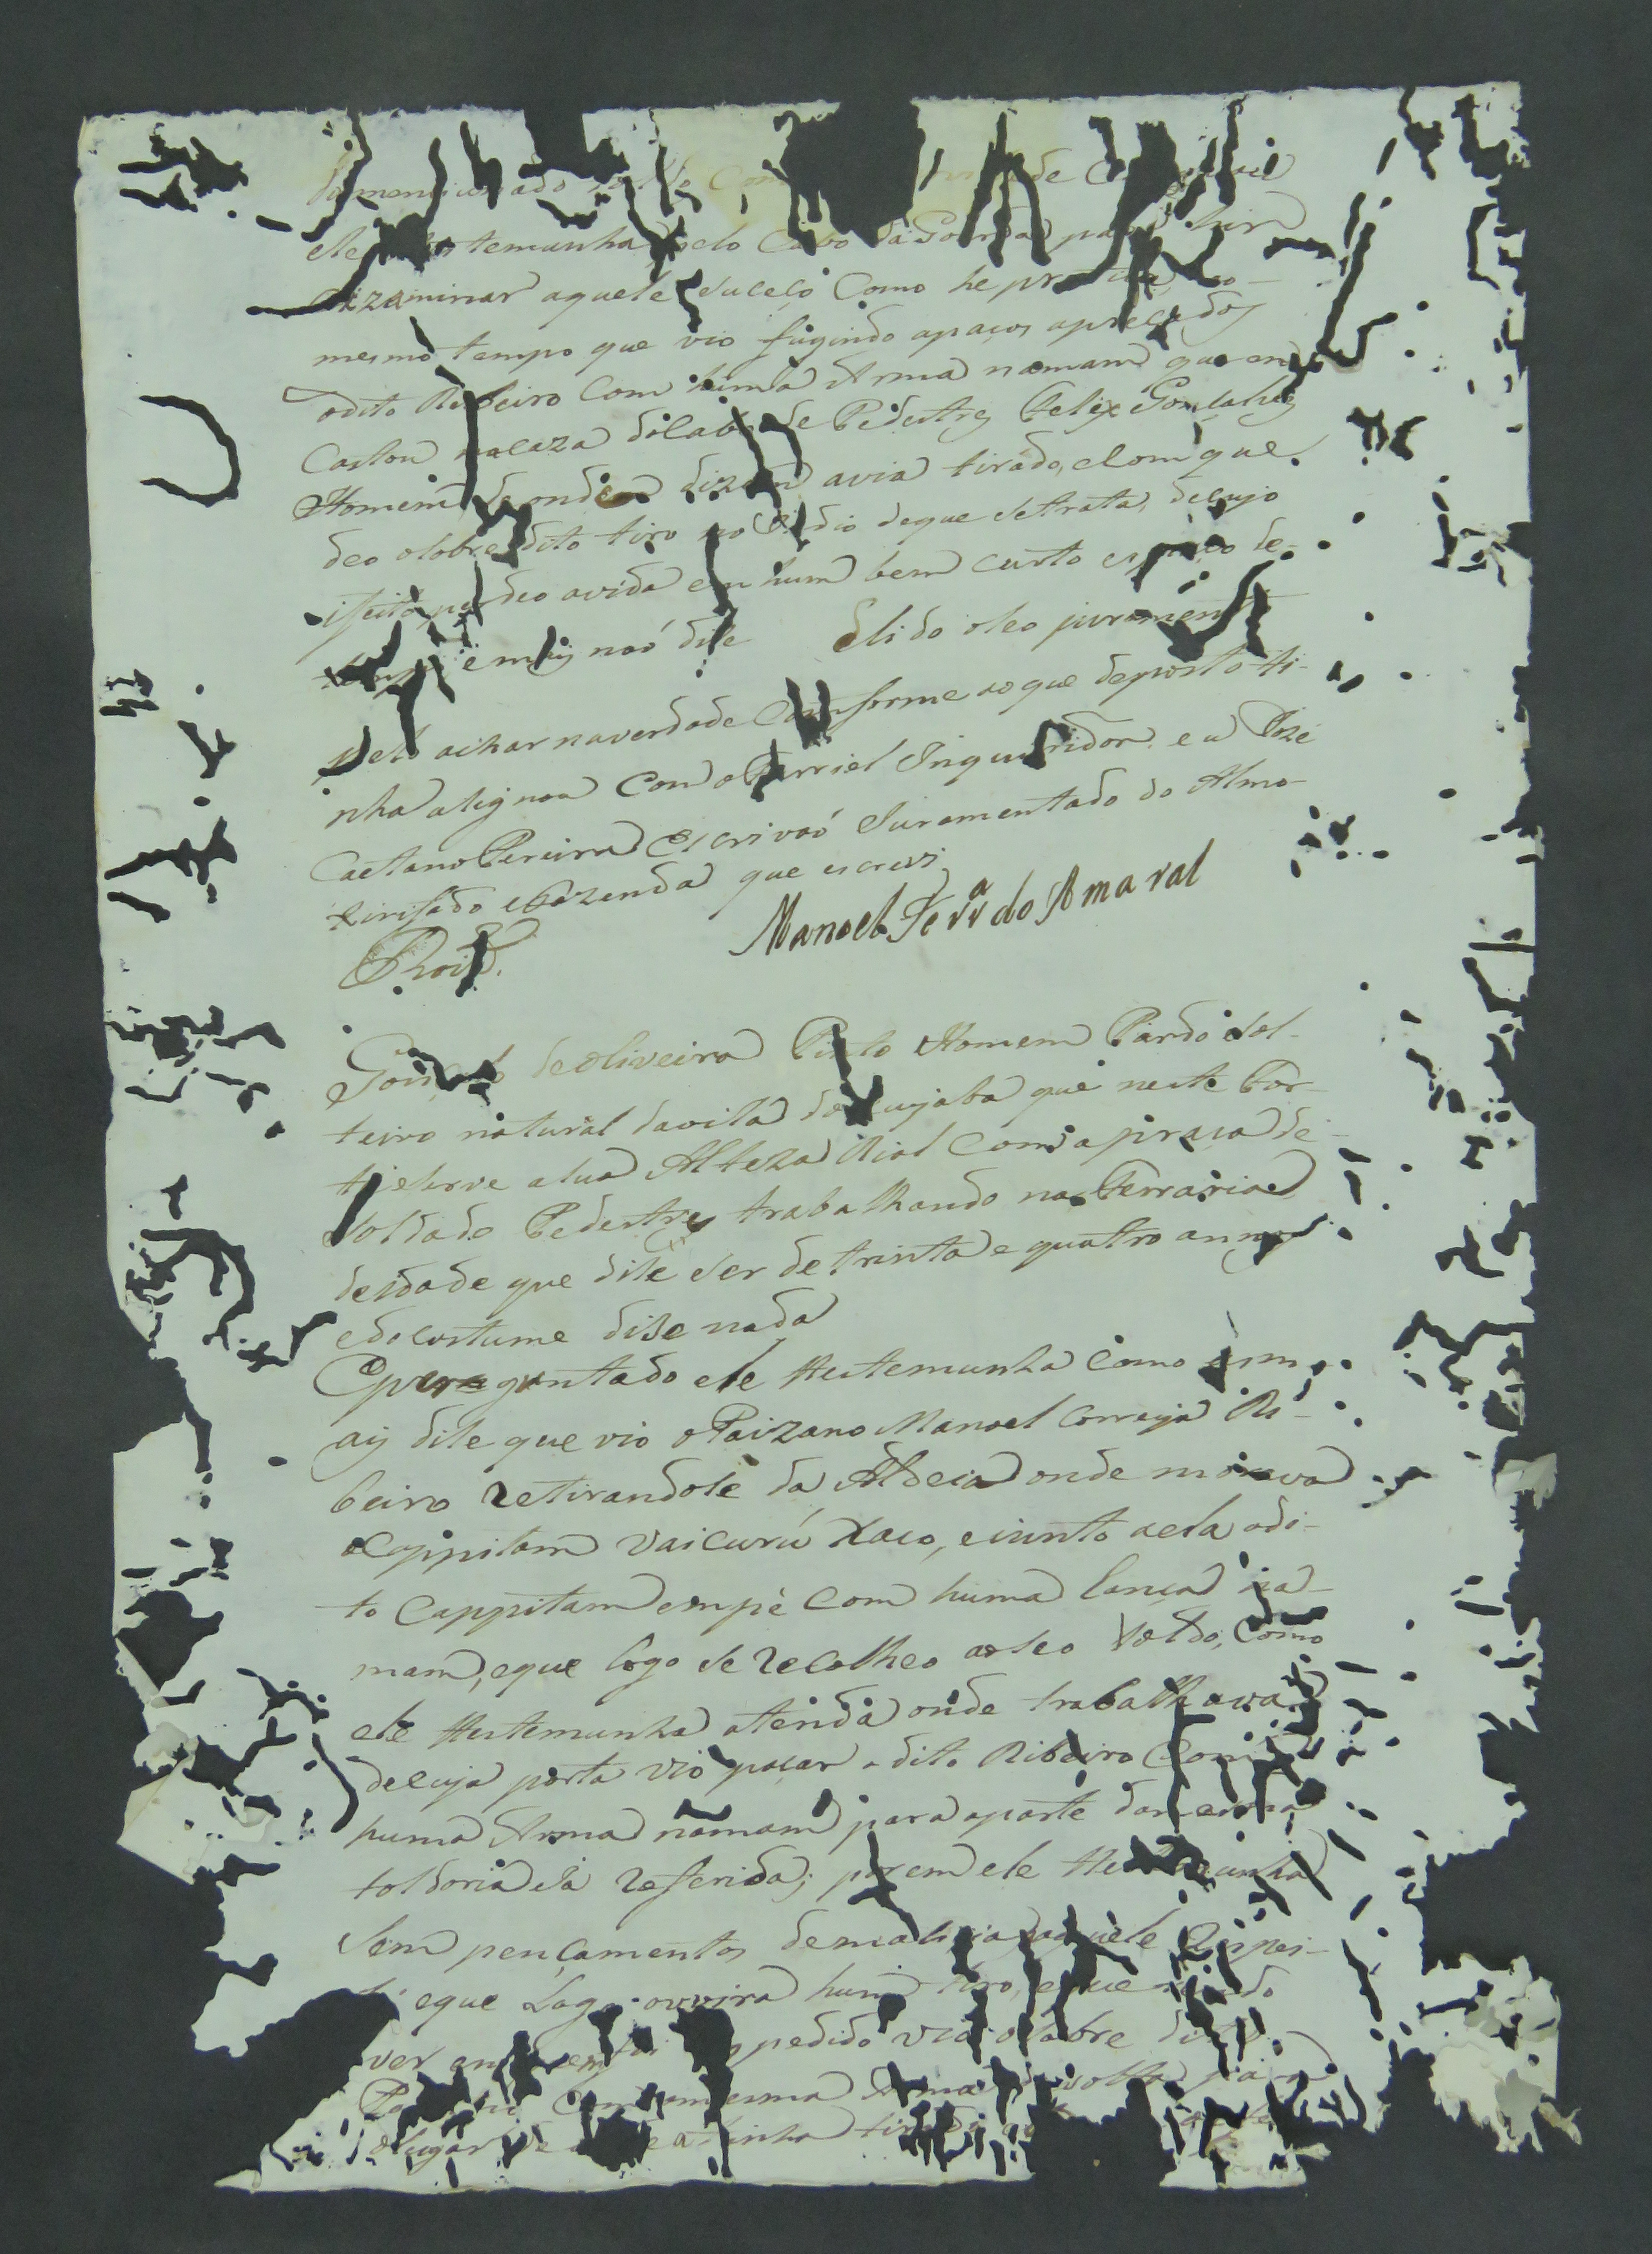 mencionado
ele temunha pelo Cabo da Goarda para hir
eizaminar aquele suceço Como he
mesmo tempo que vio fugindo apaços apreçados
odito Ribeiro Com huma Arma namam que en-
Costou nacaza doCabo de Pedestres Felix Gonçalves
Homem deonde dizem avia tirado, eCom que
deo oSobre dito tiro no Indio deque setrata, decujo
ifeito perdeo avida em hum bem Curto espaço de-
tempo e mais naó dise Elido oseo juramento
pelo achar naverdade Comforme aoque deposto ti-
nha asignou Com oFurriel Inqueridor, e eu Joze
CaetanoPereira Escrivaó Juramentado do Almo-
xirifado eFazenda que escrevi
Manoel Ferr.ª do Amaral
Gonçalo deOliveira Pinto Homem Pardo Sol-
teiro natural davila doCuyaba que neste For-
te serve aSua Alteza Rial Com apraça de-
Soldado Pedestre trabalhando na Ferraria
deidade que dise ser de trinta e quatro annos
edocostume dise nada
Eperguntado ele testemunha Como
dise que vio oPaizano Manoel Correya Ri-
beiro retirandose da Aldeia onde morava
oCappitam Vaicurú Xaco, ejunto aela odi-
to Cappitam empé Com huma lança na-
mam, eque logo se recolheo aoseo toldo, Como
ele testemunha atenda onde trabalhava
decuja porta vio paçar odito Ribeiro Com
huma Arma namam para aparte damesma
toldoria já referida; porem ele testemunha
Sem pençamentos demalicia daquele
eque Logo ouvira hum tiro, eque
ver pedido vio oSobre dito
Com amesma Arma devolta para
olugar de tinha